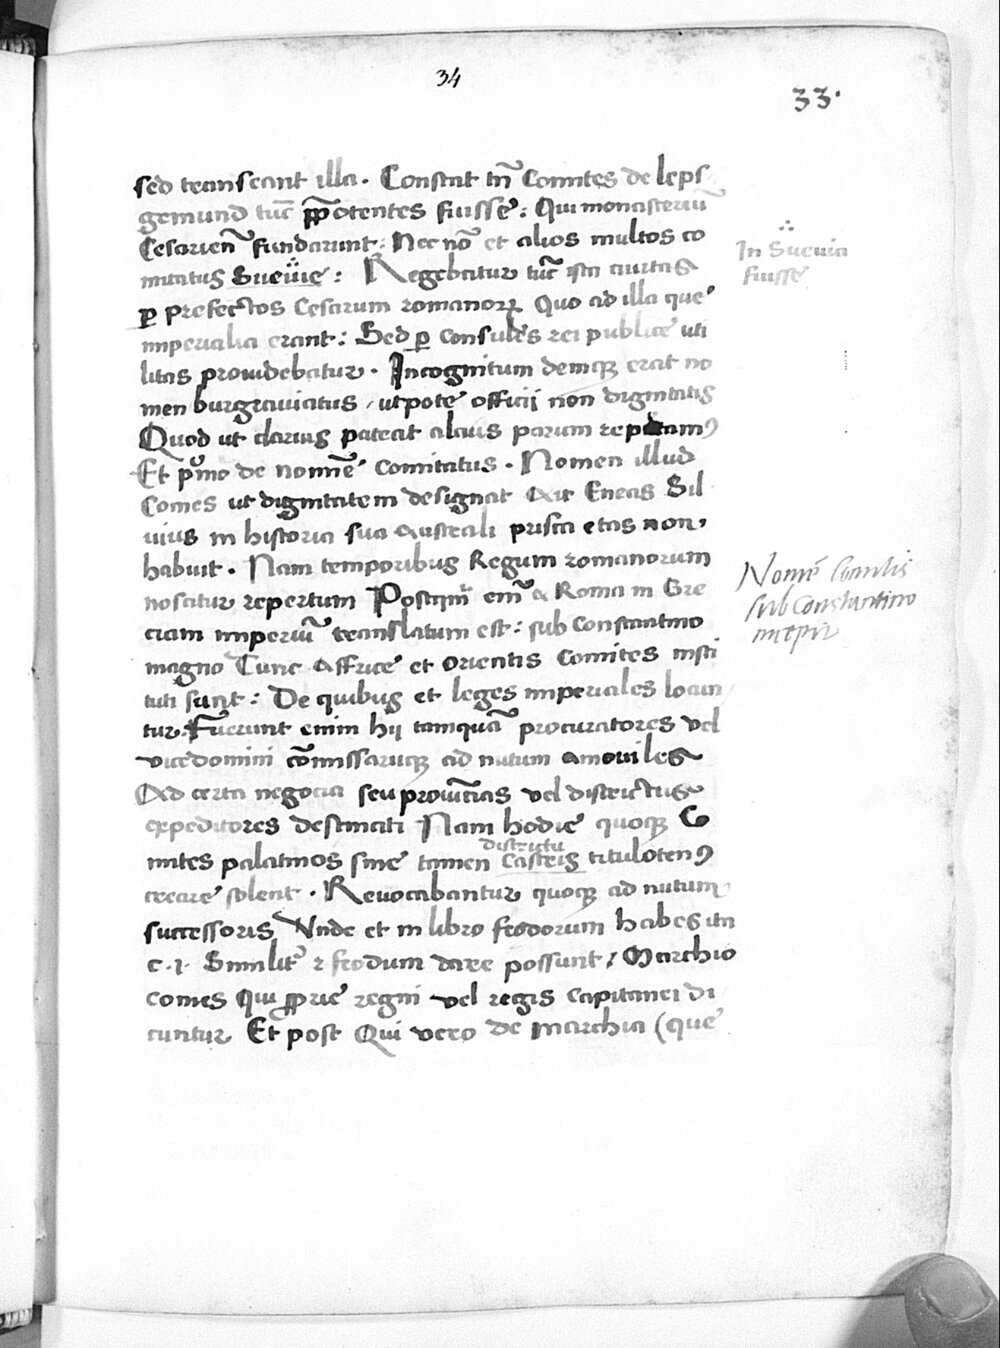 34
33.
sed transeant illa. Constat tn̄ Comites de leps
gemund tūc p̄potentes fuisse: Qui monasteriū
Cesarien̄ fundarunt: Nec nō et alios multos co
mitatus Sueuie: Regebatur tūc ista ciuitas
In Sueuia
fuisse
ꝑ prefectos Cesarum romanoꝝ Quo ad illa que
imperialia erant: Sed ꝑ consules rei publice uti
litas prouidebatur. Incognitum demiqꝫ erat no
men burgrauiatus, utpote officij non dignitatis
Quod ut clarius pateat alcius parum repetamꝰ
Et pͥmo de nomine Comitatus. Nomen illud
Comes ut dignitatem designat Ait Eneas Sil
uius in historia sua Australi prisca etas non
habuit. Nam temporibus Regum romanorum
noscitur repertum Postqm̄ em̄ a Roma in Gre
Nomē Comitis
sub Constantino
incepit
ciam imperiū translatum est: sub Constantino
magno Tunc Affrice et Orientis Comites insti
tuti sunt: De quibus et leges imperiales locun
tur. Fuerunt enim hij tamquā procuratores vel
vicedomini cōmissariiqꝫ ad nutum amouiles
Ad certa negocia seu prouīcias vel districtus
expeditores destinati Nam hodie quoqꝫ Co
districtu
mites palatinos sine tamen Castris titulotenꝰ
creare solent. Reuocabantur quoqꝫ ad nutum
successoris Vnde et in libro feodorum habes ita
c. 1. Similit̄ 2 feodum dare possunt, Marchio
comes Qui ꝓprie regni vel regis Capitanei di
cuntur Et post Qui vero de marchia (que